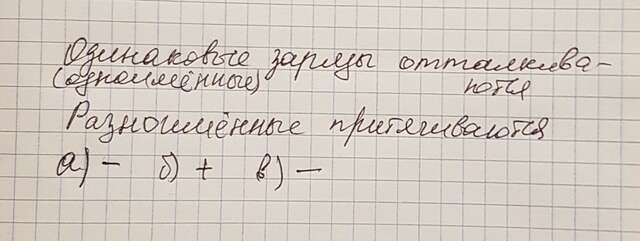 Одинаковые заряды отталкива-
(одноимённые) ются
Разноимённые притягиваются
а) – б) + в) –